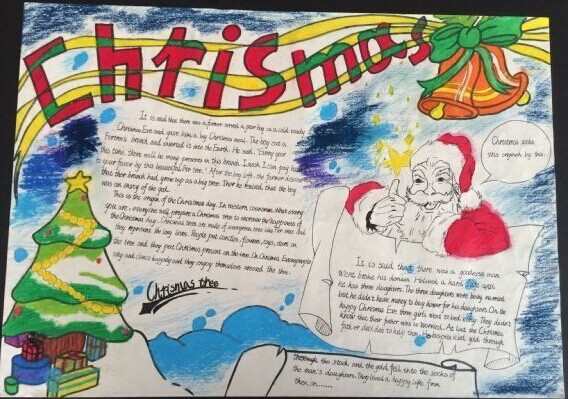 Christmas
It is said that there was a farmer served a poor boy in a cold snowly
Christmas Eve and gave him a big Christmas meal. The boy cut a
branch and inserted it into the Earth. He said, "Every year
this time, there will be many presents in this branch. I wish I can pay back
to your favor by this beautiful Per tree." After the boy left, the farmer found
that their branch had grown up as a big tree. Then he realized that the boy
was an of the god.
This is the origin of the Christmas day. In western countries, What every
you are, everyone will prepare a Christmas tree to increase the happiness of
the Christmas day. Christmas trees are made of evergreen tree like Per and
they represent the long lives. People put candles, flowers, toys, stars on
the tree and they put Christmas present on the tree. On Christmas Eve, people
sing and dance happily and they enjoy themselves around the tree.
Chtismas thee
Christmas
this originals by this:
It is said that there was a goodness man
Were broke his domain. He lived a hard life and
he has three daughters. The three daughters were being married,
but he didn't have money to buy dower for his daughters. On the
happy Christmas Eve, three girls went to bed early. They didn't
know that their father was so worried. At last the Christmas
father decided to help them. He gold through
Through the stock, and the gold fell into the socks of
the man's daughters. They lived a happy life from
then on......